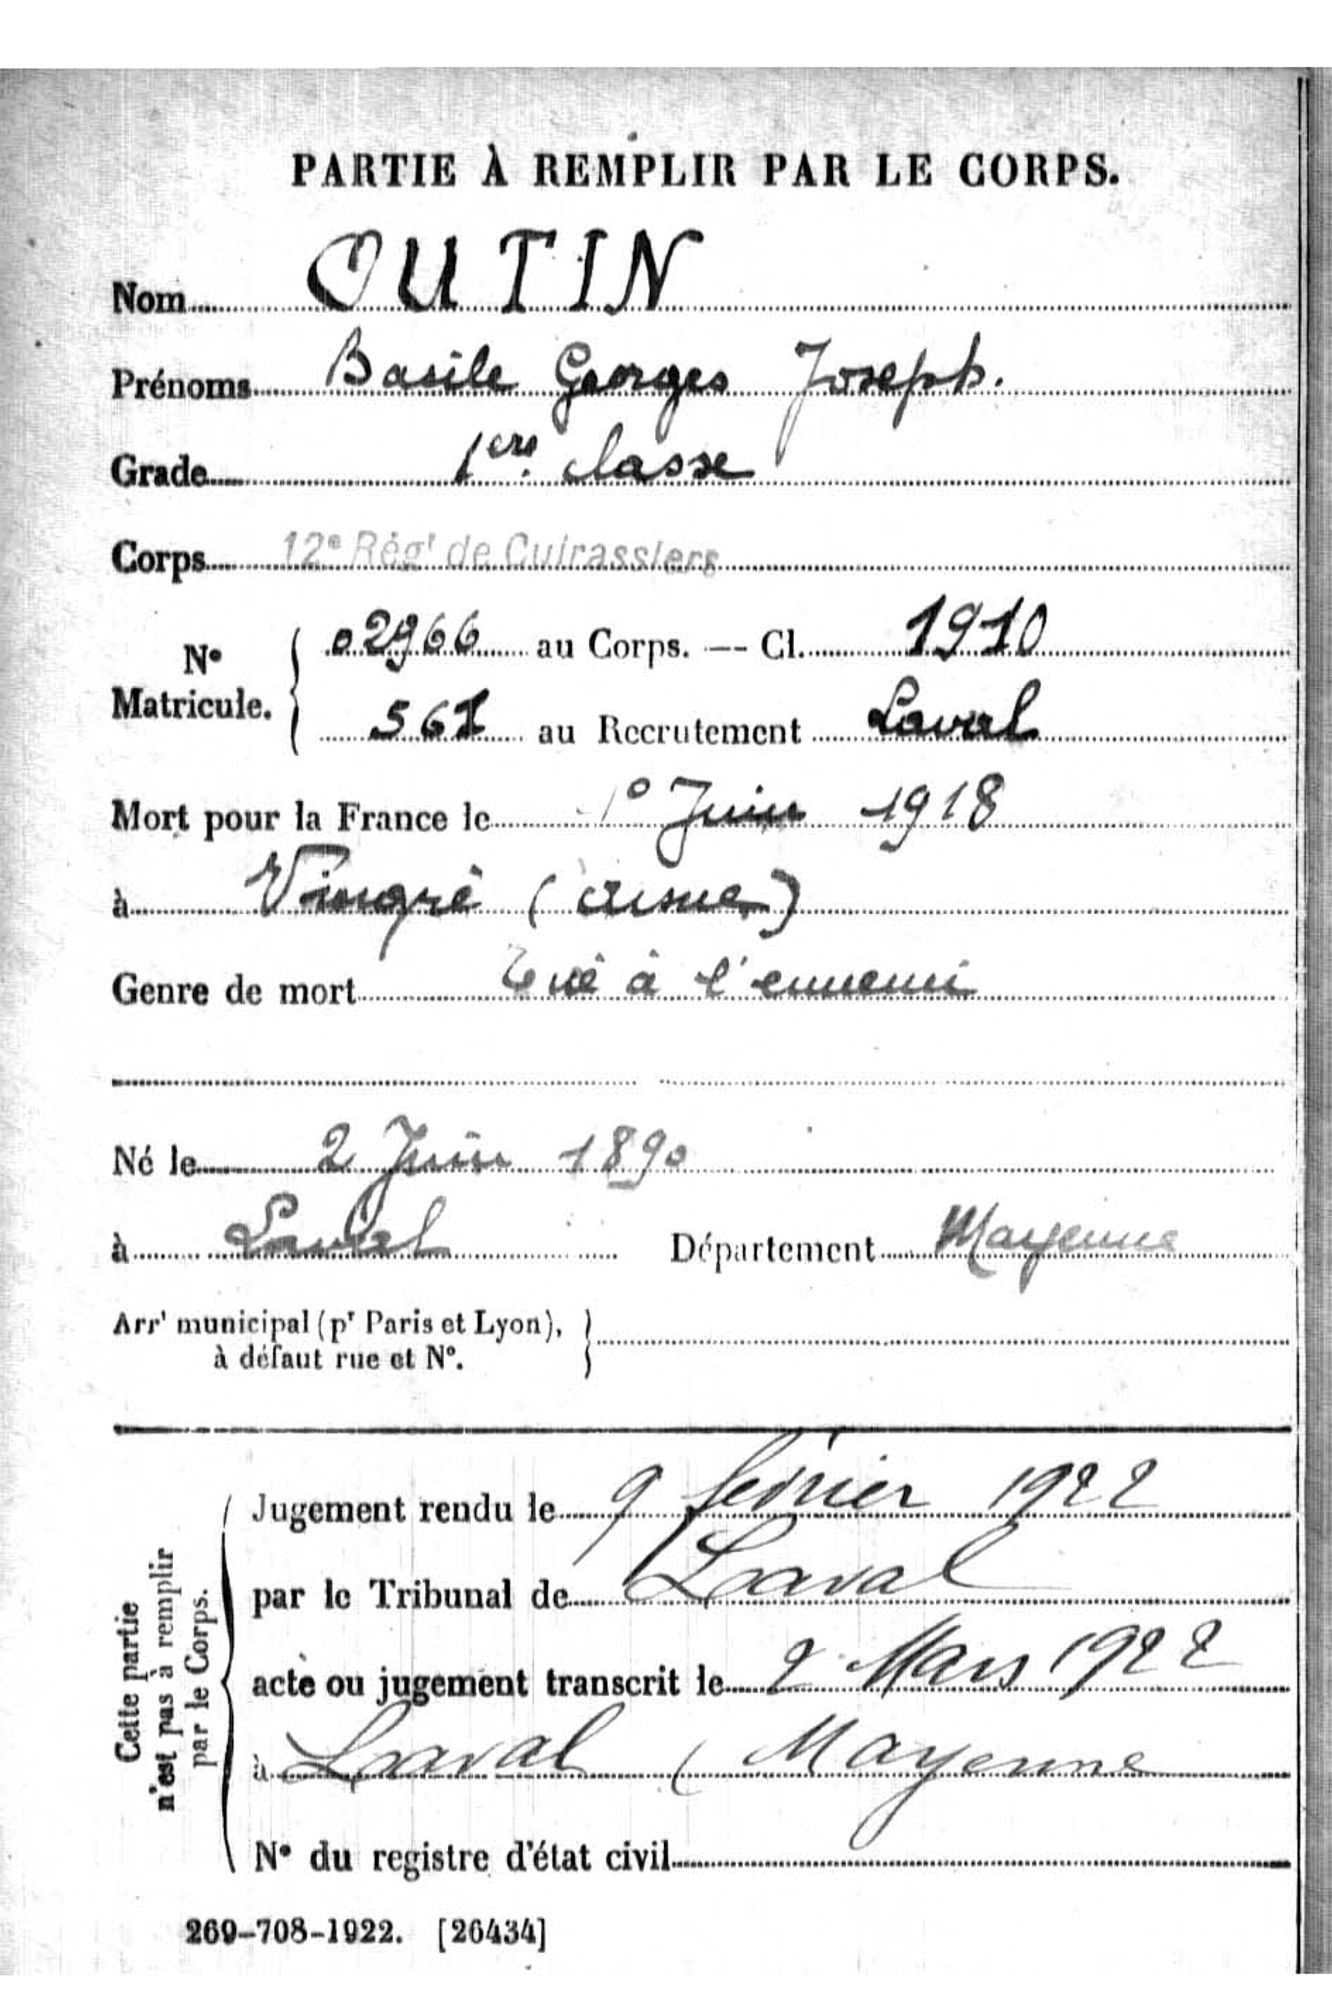 PARTIE À REMPLIR PAR LE CORPS.
Nom OUTIN
Prénoms Basile Georges Joseph.
Grade 1ere classe
Corps 12e Régt de Cuirassiers
No Matricule. { 02966 au Corps. — Cl. 1910
561 au Recrutement Laval
Mort pour la France le 1o Juin 1918
à Vingré (Aisne)
Genre de mort Tué à l'ennemi
Né le 2 Juin 1890
à Laval Département Mayenne
Arrt municipal (pr Paris et Lyon), }
à défaut rue et No.
Cette partie
n'est pas à remplir
par le Corps.
Jugement rendu le 9 février 1922
par le Tribunal de Laval
acte ou jugement transcrit le 2 Mars 1922
à Laval (Mayenne
No du registre d'état civil
269-708-1922. [26434]